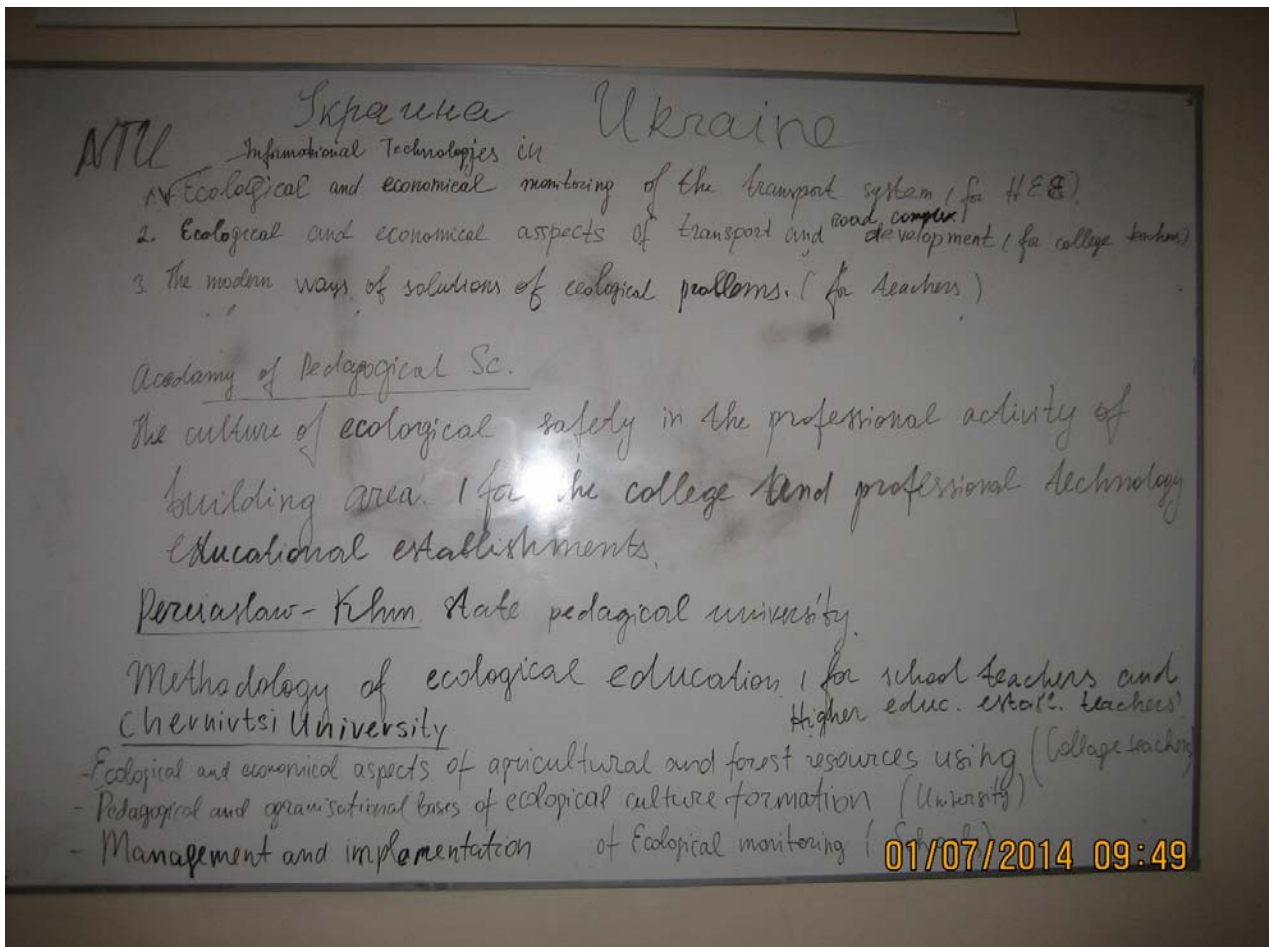 Украина Ukraine
NTU Informational Technologies in
1. Ecological and economical monitoring of the transport system (for HEE)
road complex
2. Ecological and economical asspects of transport and development (for college teachers)
3. The modern ways of solutions of ecological problems. (for teachers)
Acadamy of Pedagogical Sc.
The culture of ecological safety in the professional activity of
building area. (for the college and professional technology
educational establishments.
Pereiaslaw-Khm. state pedagical university.
Methodology of ecological education (for school teachers and
Higher educ. estab. teachers)
Chernivtsi University
- Ecological and economical aspects of agricultural and forest resources using (Collage teachers)
- Pedagogical and ogranisational bases of ecological culture formation (University)
- Management and implementation of Ecological monitoring (Schools)
01/07/2014 09:49